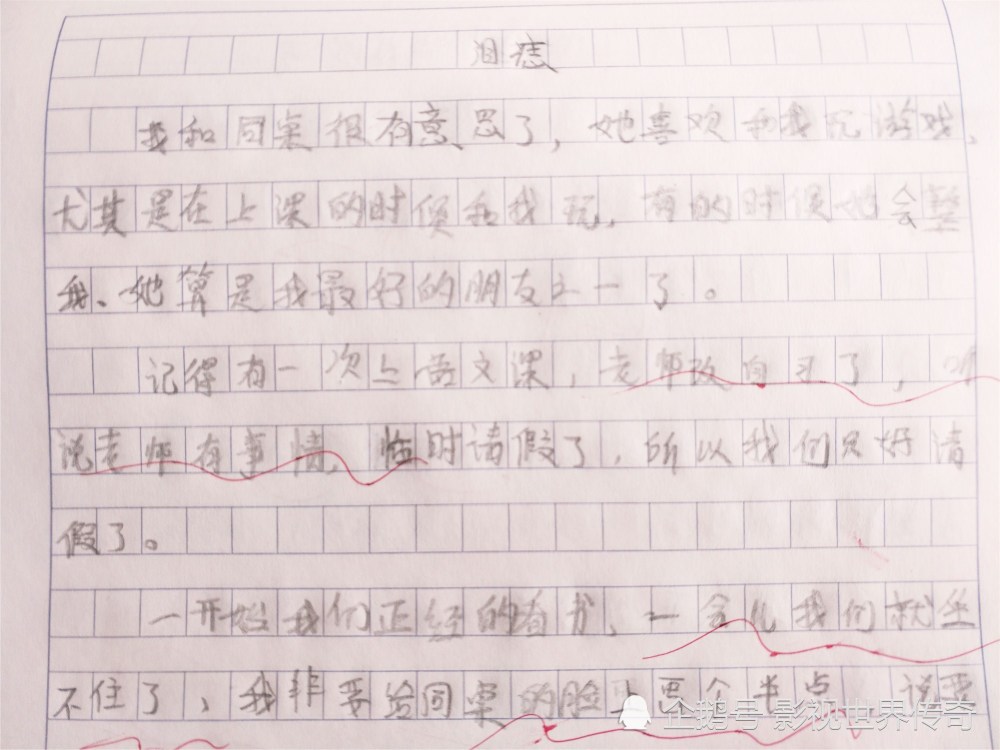 泪痣
我和同桌很有意思了，她喜欢和我玩游戏，
尤其是在上课的时候和我玩，有的时候她会整
我、她算是我最好的朋友之一了。
记得有一次上语文课，老师改自习了，听
说老师有事情，临时请假了，所以我们只好请
假了。
一开始我们正经的看书，一会儿我们就坐
不住了，我非要给同桌的脸上画个半点 说要
企鹅号 影视世界传奇